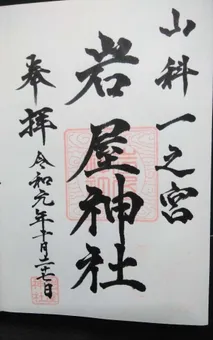 山科一之宮
岩屋神社
奉拝
令和元年十月二十七日